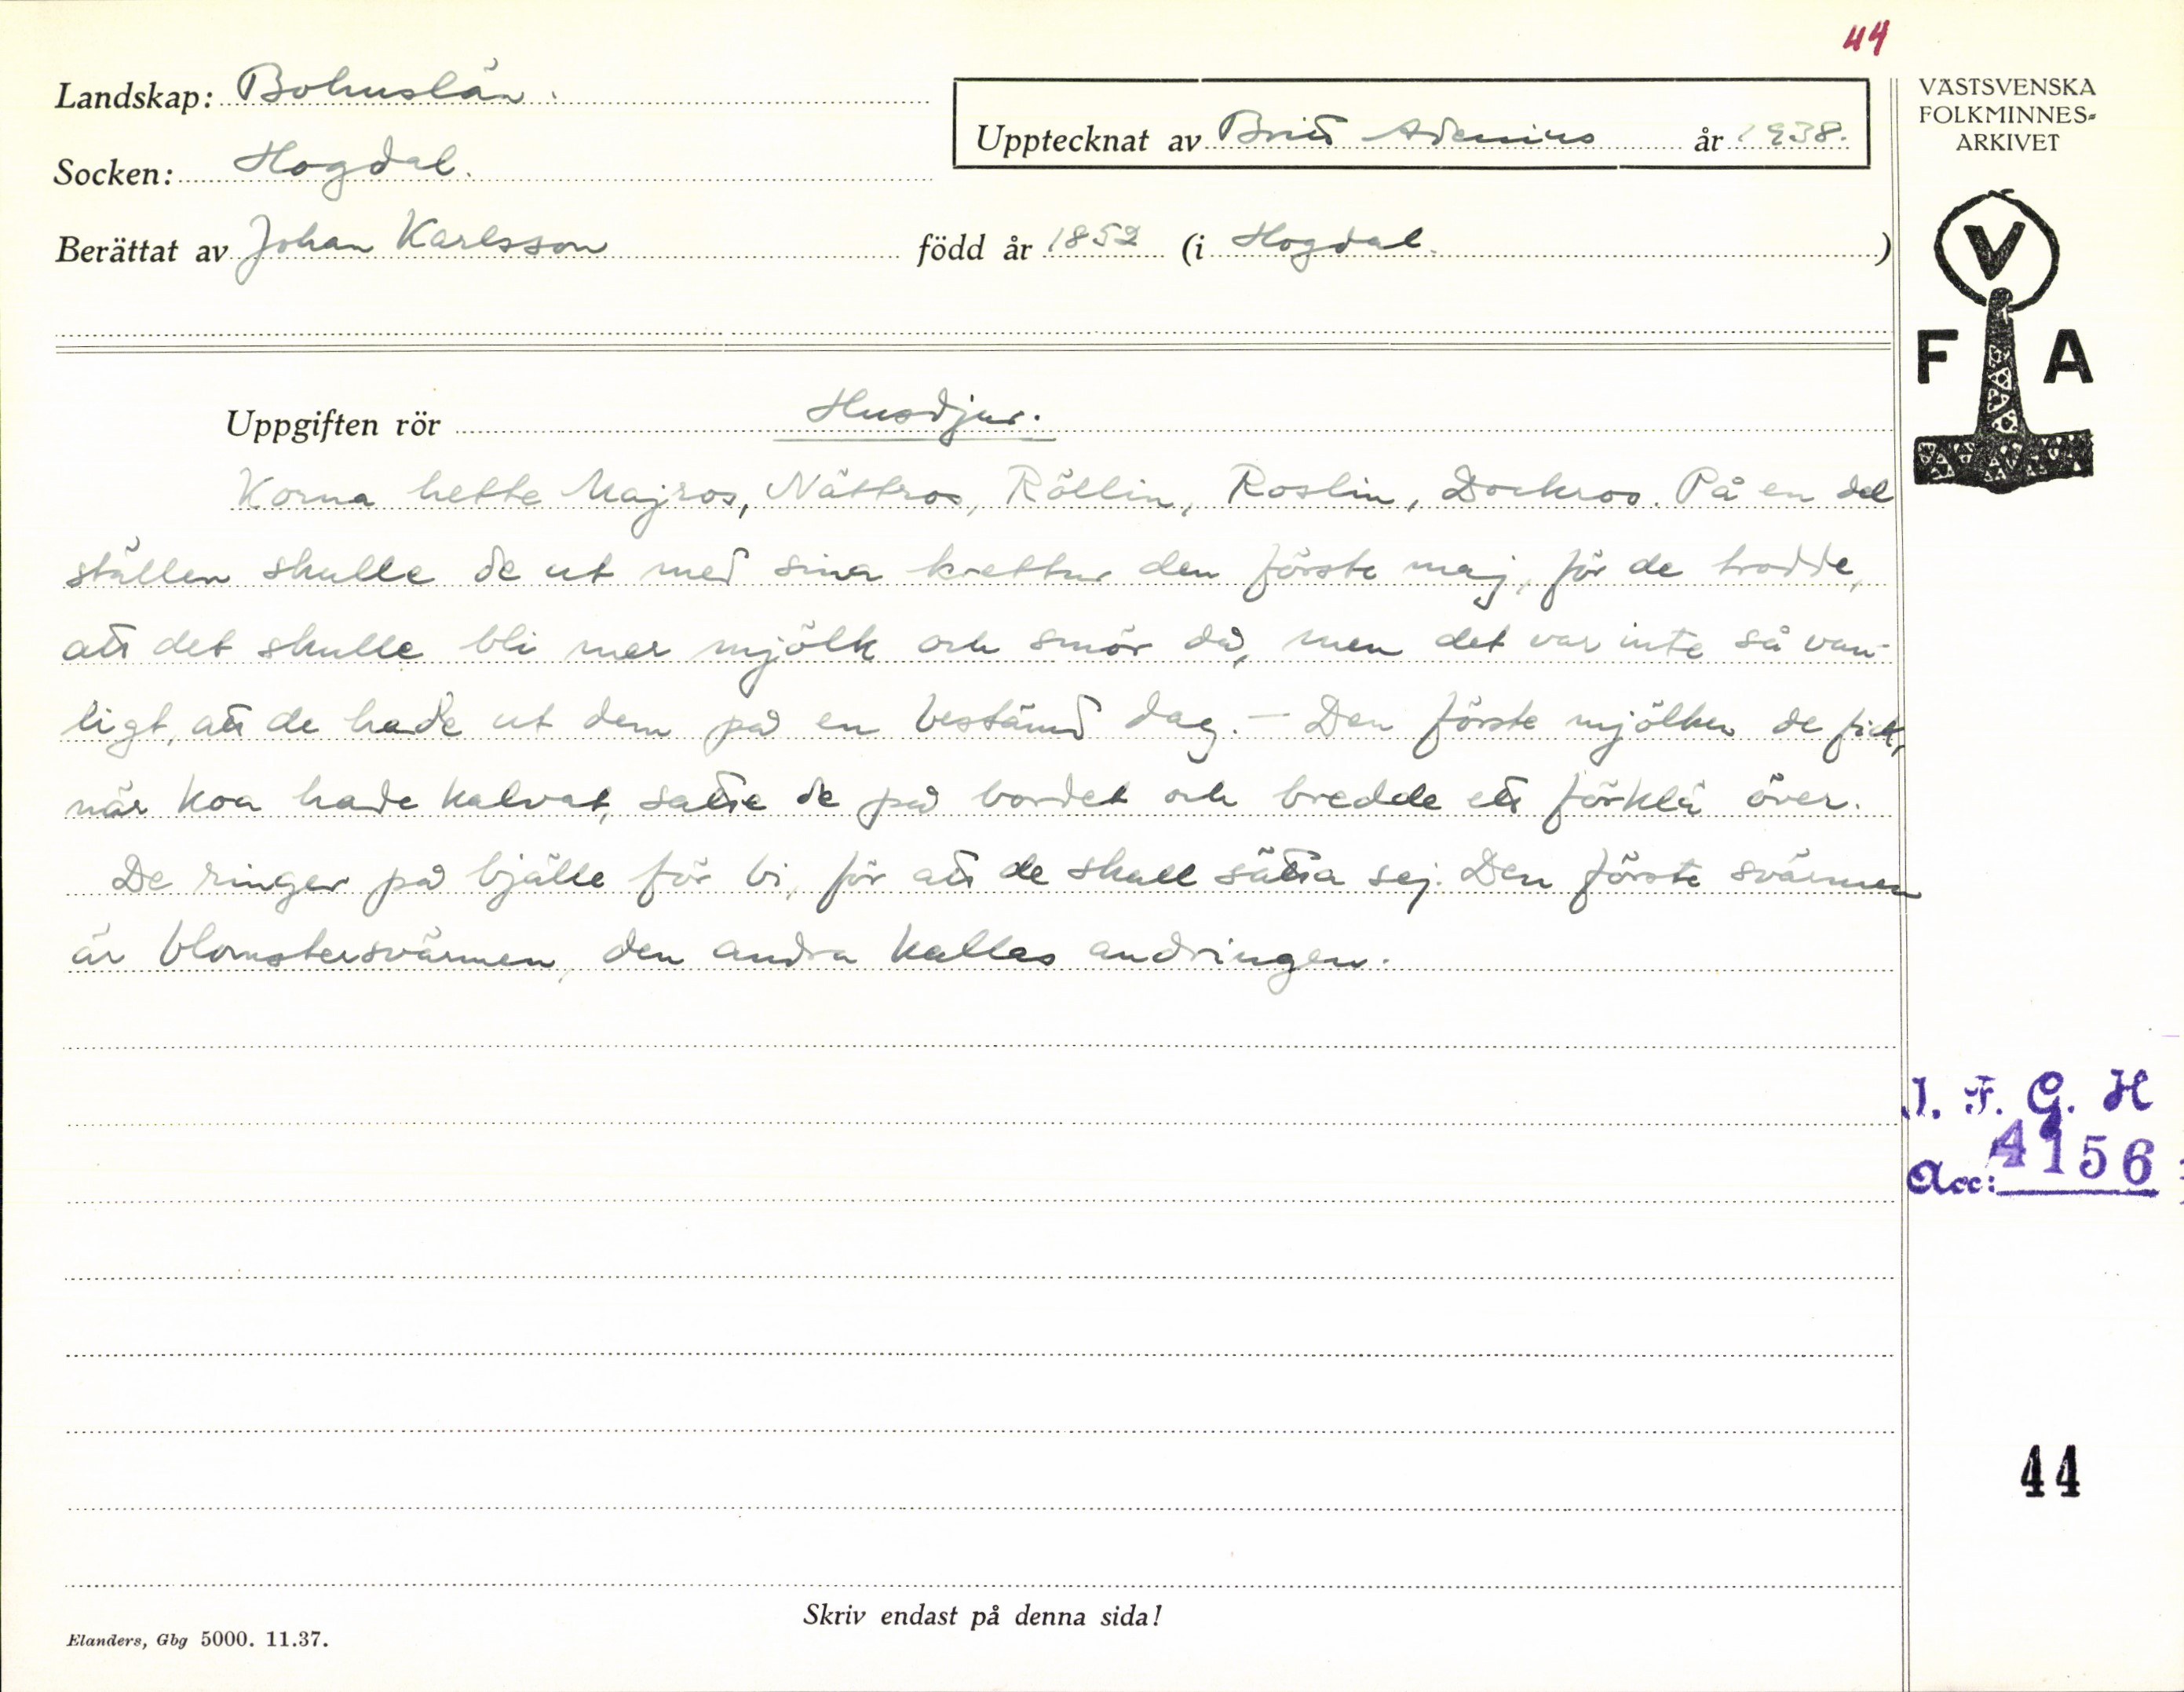 44
Landskap: Bohuslän.
Upptecknat av Britt Adenius år 1938.
VÄSTSVENSKA
FOLKMINNES-
ARKIVET
Socken: Hogdal.
Berättat av Johan Karlsson född år 1852 (i Hogdal.)
V
F A
Uppgiften rör Husdjur.
Korna hette Majros, Nättros, Röllin, Roslin, Dockros. På en del
ställen skulle de ut med sina krettur den förste maj, för de trodde,
att det skulle bli mer mjölk och smör då, men det var inte så van-
ligt, att de hade ut dem på en bestämd dag. – Den förste mjölken de fick,
när koa hade kalvat, satte de på bordet och bredde ett förklä över.
De ringer på bjälle för bi, för att de skall sätta sej. Den förste svärmen
är blomstersvärmen, den andra kallas andringen.
I. F. G. H
Acc: 4156
44
Skriv endast på denna sida!
Elanders, Gbg 5000. 11.37.